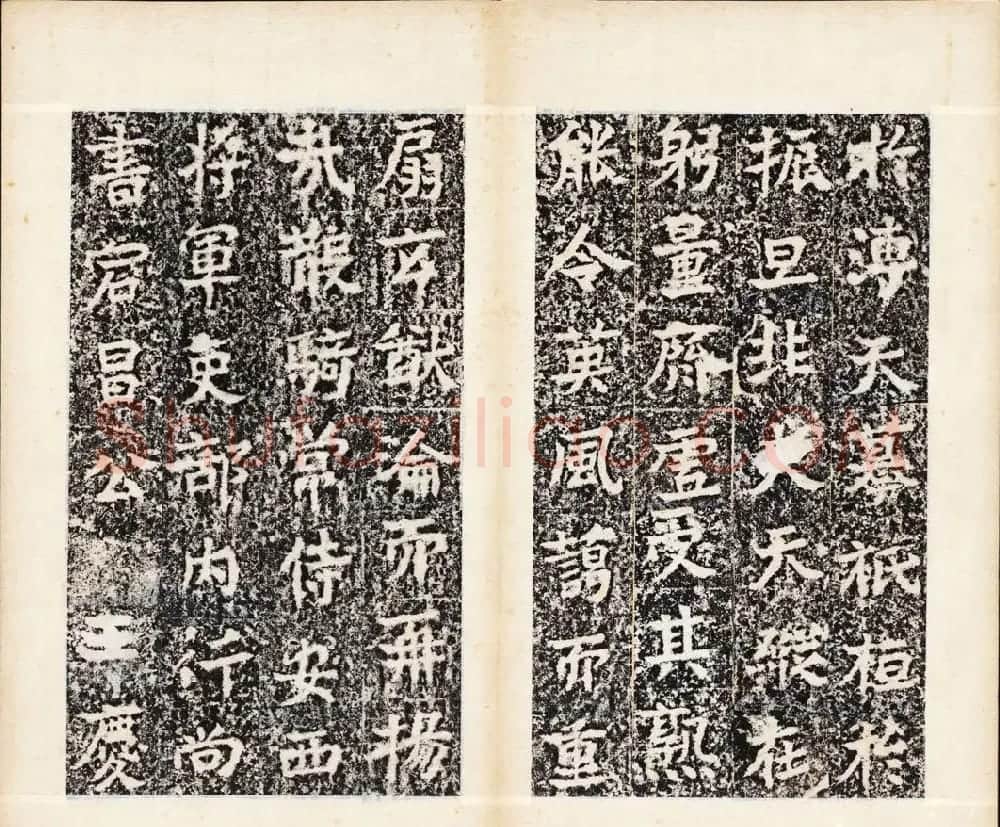 於溥天摹祇桓於
振旦非夫天縱在
躬量齊虛受其熟
能令英風藹而重
扇玄猷淪而再揚
哉散騎常侍安西
將軍吏部内行尚
書宕昌公王慶
Shufaziliao.COM